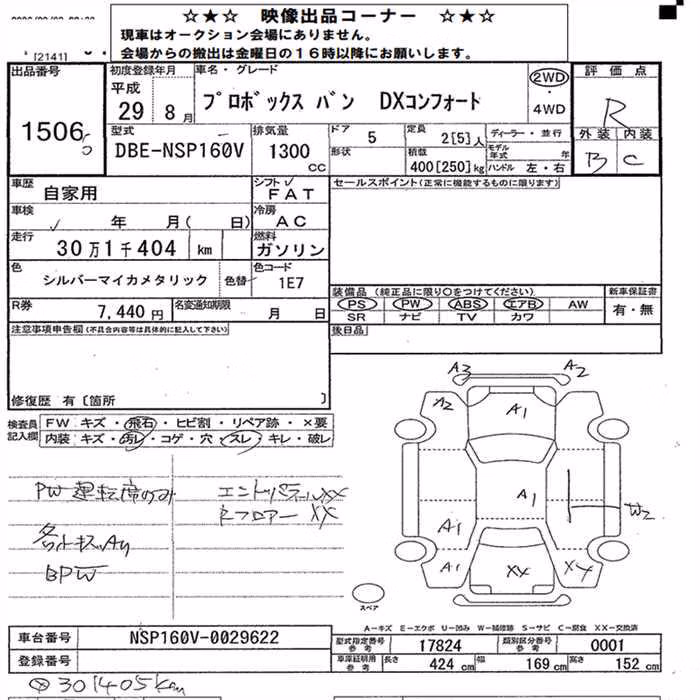 ☆★☆ 映像出品コーナー ☆★☆
現車はオークション会場にありません。
会場からの搬出は金曜日の16時以降にお願いします。
[2141]
出品番号
1506
初度登録年月
平成
29 8月
車名・グレード
プロボックス バン DXコンフォート
2WD
・
4WD
評価点
R
外装 内装
B C
型式
DBE-NSP160V
排気量
1300 CC
ドア 5
形状
定員 2[5]人
積載 400[250]kg
ディーラー・並行
モデル年式 年
ハンドル 左・右
車歴 自家用
シフト FAT
車検 年 月( 日)
冷房 AC
走行 30万1千404 km
燃料 ガソリン
色 シルバーマイカメタリック 色替
色コード 1E7
R券 7,440円
名変通知期限 月 日
セールスポイント(正常に機能するものに限ります)
装備品 (純正品に限り〇をつけてください)
新車保証書
PS PW ABS エアB AW
有・無
SR ナビ TV カワ
後日品
注意事項申告欄(不具合内容等は具体的に記入して下さい)
修復歴 有〔箇所 〕
検査員記入欄
FW キズ・飛石・ヒビ割・リペア跡・×要
内装 キズ・汚レ・コゲ・穴・スレ・キレ・破レ
PW 運転席のみ
エンドパネルXX
Rフロアー XX
BPW
A3 A2
A2 A1
A1 W2
A1
A1 XX XY
スペア
A-キズ E-エクボ U-凹み W-補修跡 S-サビ C-腐食 XX-交換済
車台番号 NSP160V-0029622
登録番号
型式指定番号 参考 17824
類別区分番号 参考 0001
車庫証明用 参考 長さ 424 cm 幅 169 cm 高さ 152 cm
301405km